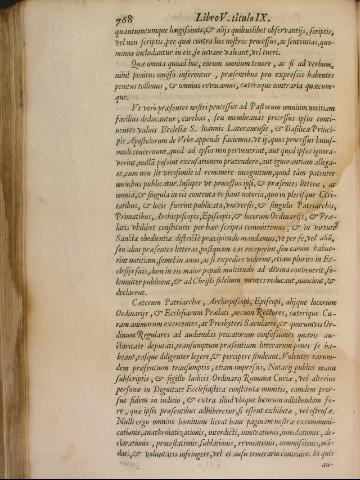 768 Libro V. titulo IX.
quantumcumque longissimis, & alijs quibuslibet observantijs, scriptis,
vel non scriptis, per quæ contra hos nostros processus, ac sententias, quo-
minus includantur in eis, se iuvare valeant, vel tueri.
Quæ omnia quoad hoc, eorum omnium tenore, ac si ad verbum,
nihil penitus omisso inserentur, præsentibus pro expressis habentes
penitus tollimus, & omnino revocamus, cæterisque contrarijs quacum-
que.
Ut verò præsentes nostri processus ad Pastorum omnium notitiam
facilius deducantur, earthas, seu membranas processus ipsos conti-
nentes valvis Ecclesiæ S. Ioannis Lateranensis, & Basilicæ Princi-
pis Apostolorum de Urbe appendi faciemus, ut ij, quos processus huius-
modi concernunt, quod ad ipsos non pervenerint, aut quod ipsos ignora-
verint, nullā possint excusationem prætendere, aut ignorantiam allega-
re, cum non sit verisimile id remanere incognitum, quod tàm patenter
omnibus publicatur. Insuper ut processus ipsi, & præsentes litteræ, ac
omnia, & singula in eis contenta eò fiant notiora, quo in plerisque Civi-
tatibus, & locis fuerint publicata, universis, & singulis Patriarchis,
Primatibus, Archiepiscopis, Episcopis, & locorum Ordinarijs, & Præ-
latis ubilibet constitutis per hæc scripta committimus, & in virtute
Sanctæ obedientiæ districtè præcipiendo mandamus, ut per se, vel aliū,
seu alios præsentes litteras, postquam eas receperint, seu earum habue-
rint notitiam, semel in anno, ac si expedire viderint, etiam pluries in Ec-
clesijs suis, dum in eis maior populi multitudo ad divina convenerit, so-
lemniter publicent, & ad Christi fidelium mentes reducant, nuncient, &
declarent.
Cæterum Patriarchæ, Archiepiscopi, Episcopi, alijque locorum
Ordinarij, & Ecclesiarum Prælati, necnon Rectores, cæterique Cu-
ram animarum exercentes, ac Presbyteri Seculares, & quorumvis Or-
dinum Regulares ad audiendas peccatorum confessiones quavis au-
ctoritate deputati, transumptum præsentium litterarum penes se ha-
beant, easque diligenter legere, & percipere studeant. Volentes earum-
dem præsentium transumptis, etiam impressis, Notarij publici manu
subscriptis, & sigillo Iudicis Ordinarij Romanæ Curiæ, vel alterius
personæ in Dignitate Ecclesiastica constitutæ munitis, eamdem pror-
sus fidem in iudicio, & extra illud ubique locorum adhibendam fo-
re, quæ ipsis præsentibus adhiberetur, si essent exhibitæ, vel ostensæ.
Nulli ergo omnino hominum liceat hanc paginam nostræ excommuni-
cationis, anathematizationis, interdicti, innovationis, innodationis, de-
clarationis, protestationis, sublationis, revocationis, commissionis, mā-
dati, & voluntatis infringere, vel ei ausu temerario contraire. Si quis
au-